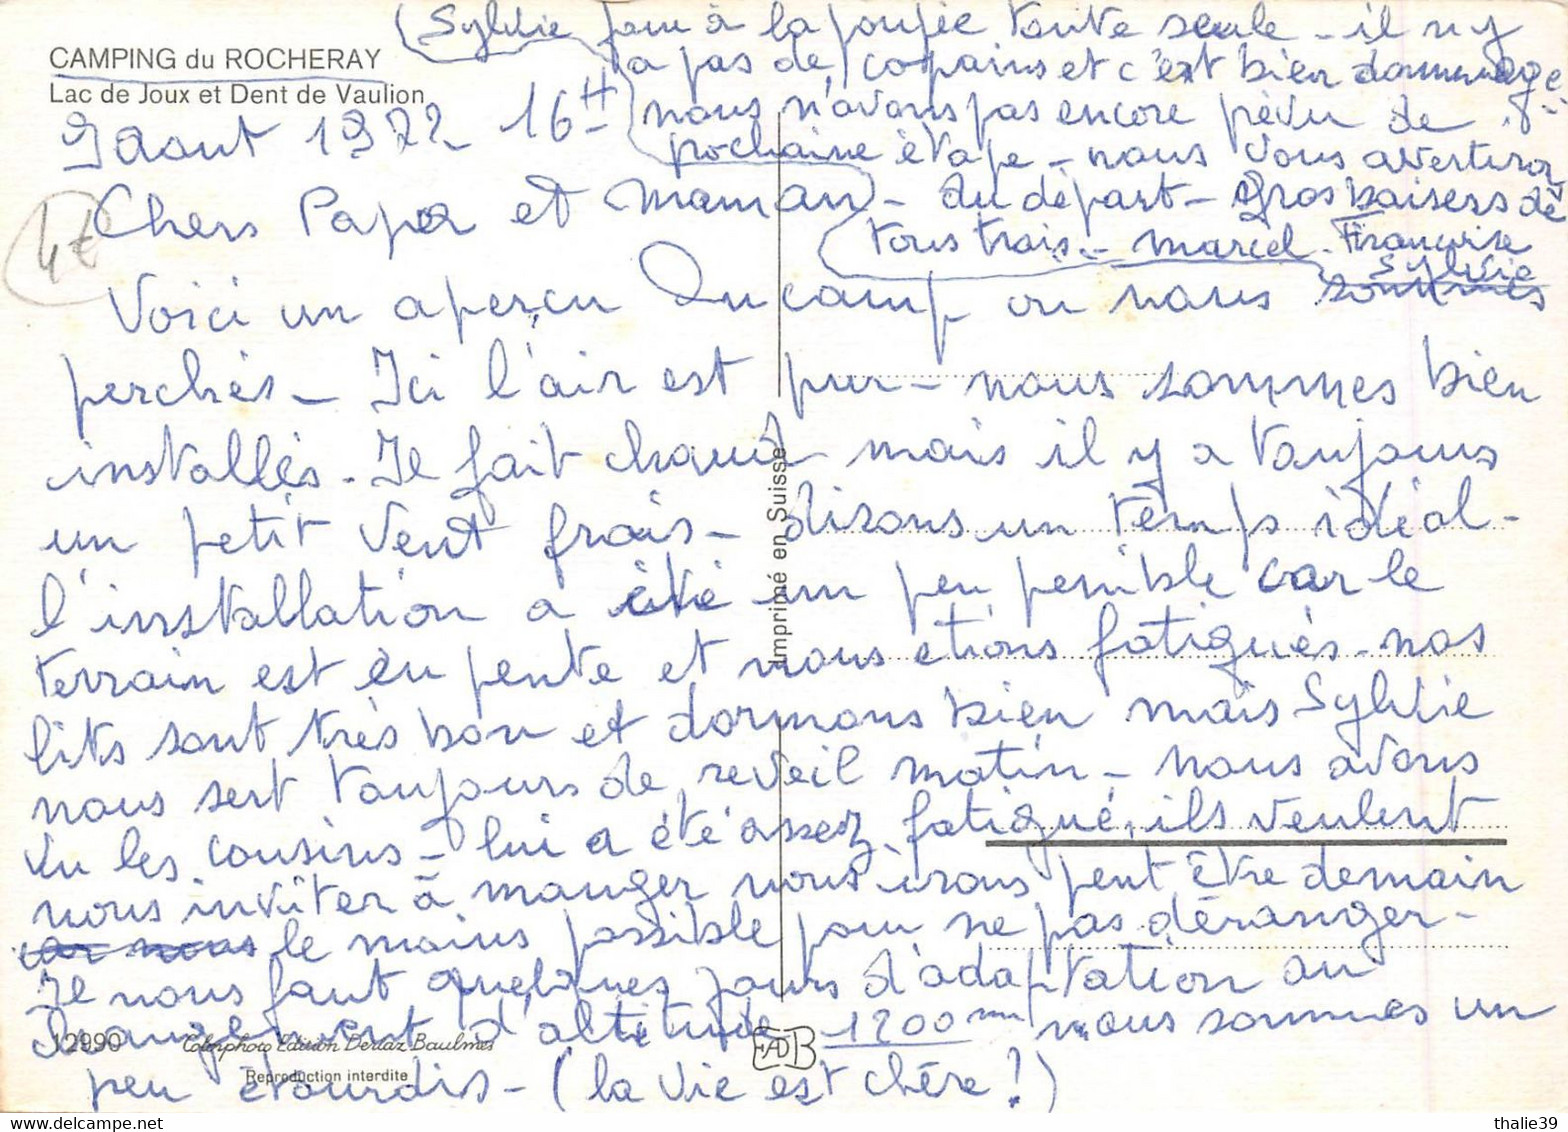 CAMPING du ROCHERAY
Lac de Joux et Dent de Vaulion
9 aout 1972 16H
4€
Chers Papa et Maman -
Voici un aperçu Du camp ou nous sommes
perchés - Ici l'air est pur - nous sommes bien
installés - Il fait chaud mais il y a toujours
un petit vent frais - disons un temps idéal -
l'installation a été un peu penible car le
terrain est en pente et nous etions fatigués - nos
lits sont très bon et dormons bien mais Sylvie
nous sert toujours de reveil matin - nous avons
vu les cousins - lui a été assez fatigué, ils veulent
nous inviter à manger nous irons peut être demain
car nous le moins possible pour ne pas déranger -
Il nous faut quelques jours d'adaptation au
changement d'altitude 1200 m nous sommes un
peu étourdis - (la vie est chére!)
(Sylvie joue à la poupée toute seule - il n'y
a pas de copains et c'est bien dommage
nous n'avons pas encore prévu de
prochaine étape - nous vous avertiron
au départ - Gros baisers de
tous trois - Marcel - Françoise
Sylvie
Imprimé en Suisse
12990 Colorphoto Edition Deriaz Baulmes
Reproduction interdite
EADB
thalie39